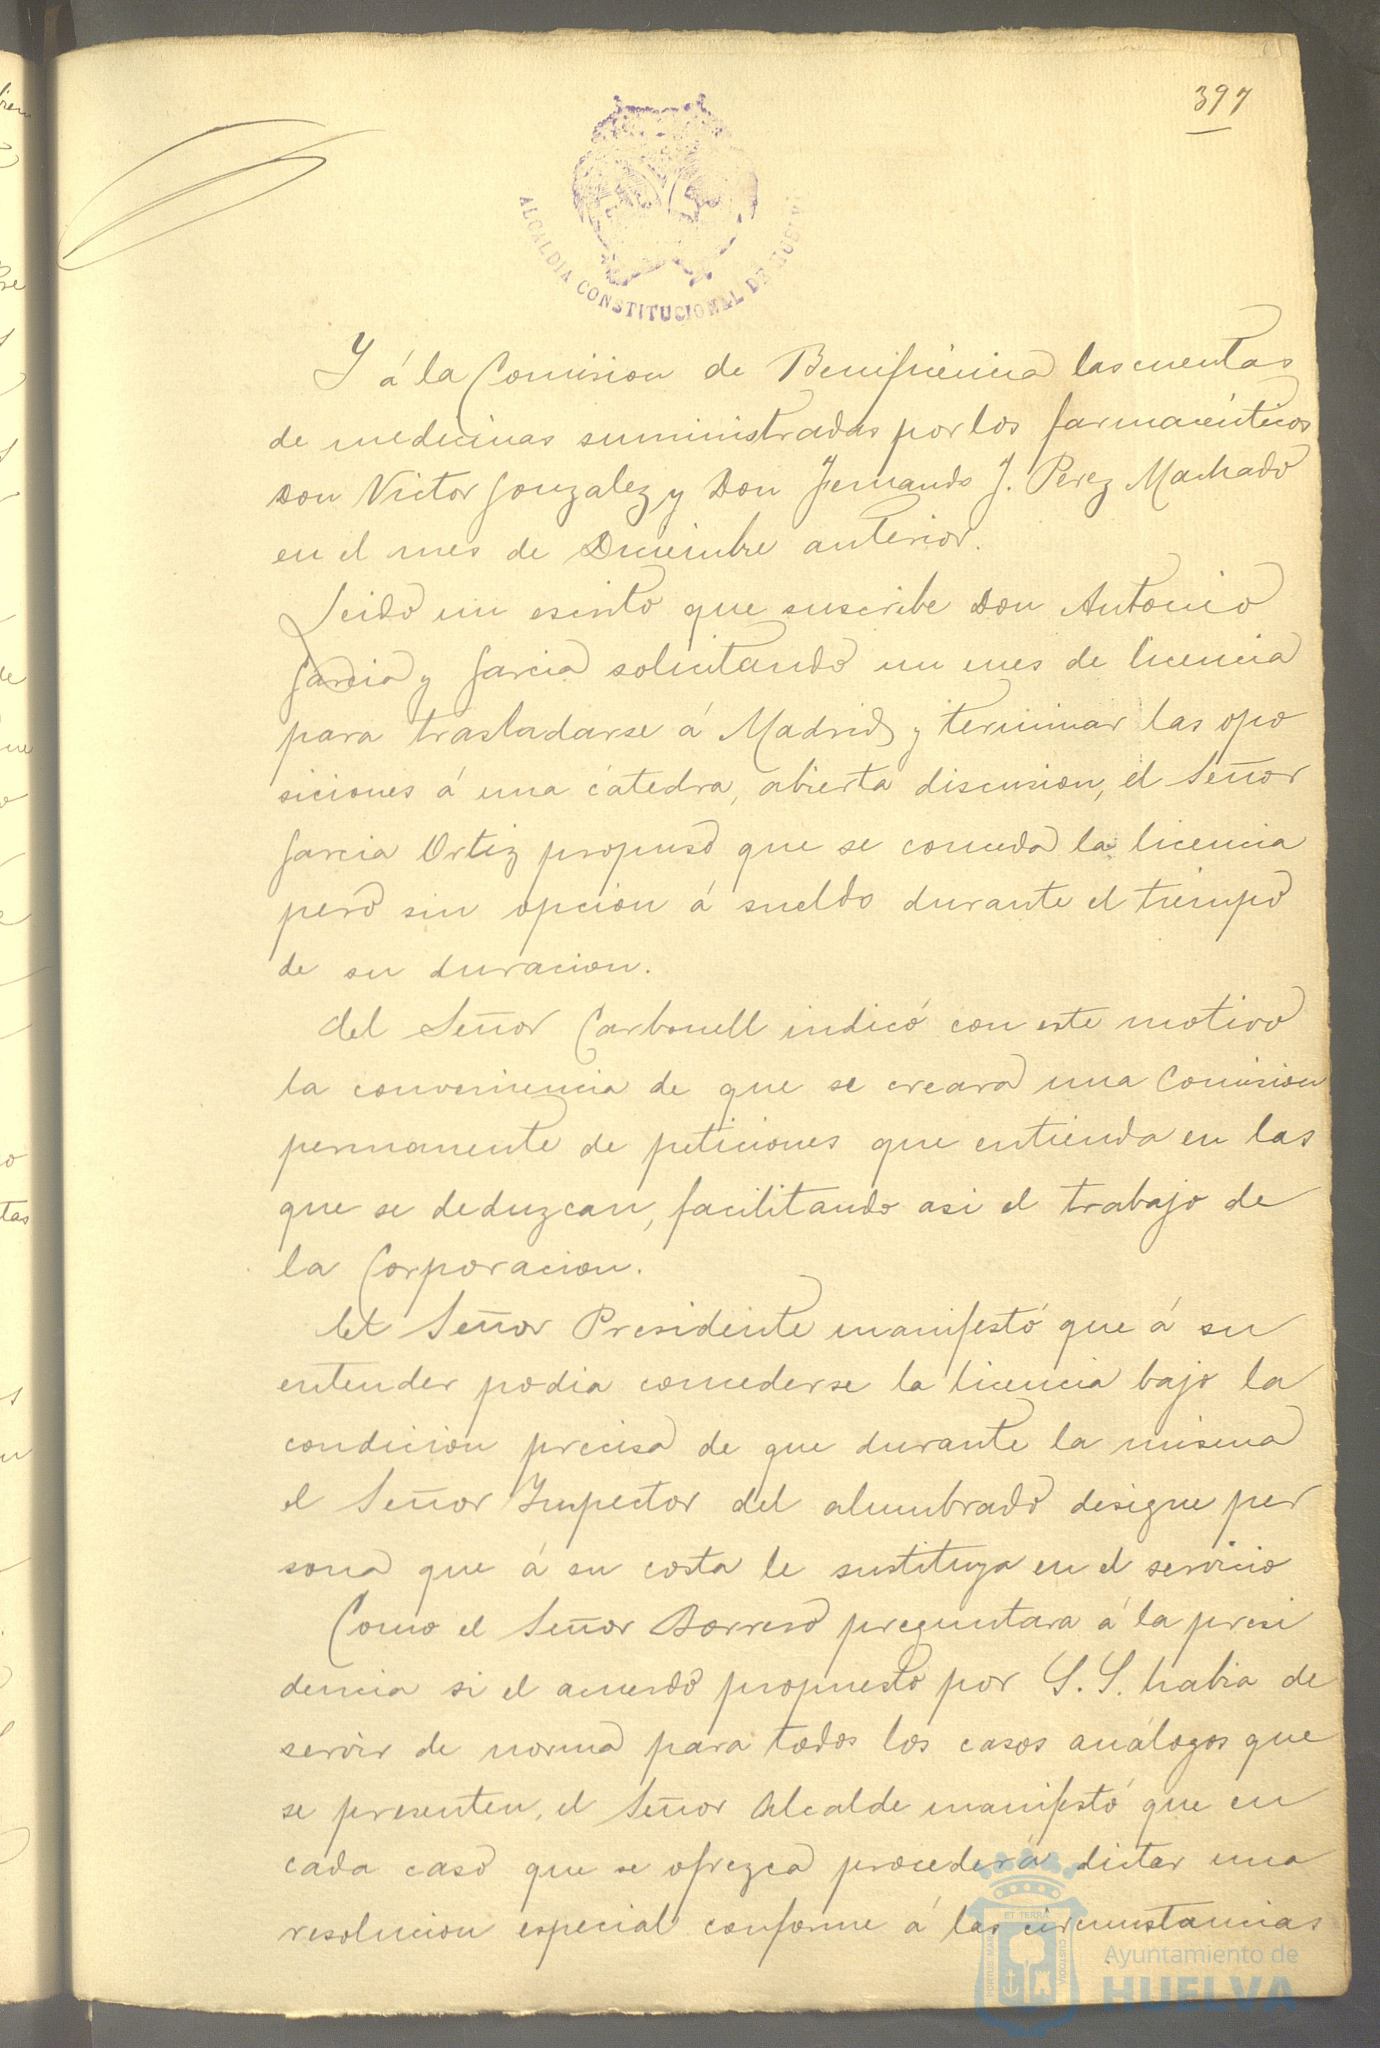 397
ALCALDIA CONSTITUCIONAL DE HUELVA
Y á la Comision de Benificiencia las cuentas
de medicinas suministradas por los farmacéuticos
Don Victor Gonzalez y Don Fernando J. Perez Machado
en el mes de Diciembre anterior.
Leido un escrito que suscribe Don Antonio
Garcia y Garcia solicitando un mes de licencia
para trasladarse á Madrid y terminar las opo
siciones á una cátedra, abierta discusion, el Señor
Garcia Ortiz propuso que se conceda la licencia
pero sin opcion á sueldo durante el tiempo
de su duracion.
El Señor Carbonell indicó con este motivo
la conveniencia de que se creara una Comision
permanente de peticiones que entienda en las
que se deduzcan, facilitando asi el trabajo de
la Corporacion.
El Señor Presidente manifestó que á su
entender podia concederse la licencia bajo la
condicion precisa de que durante la misma
el Señor Inspector del alumbrado designe per
sona que á su costa le sustituya en el servicio
Como el Señor Borrero preguntara á la presi
dencia si el acuerdo propuesto por S. S. habia de
servir de norma para todos los casos análogos que
se presenten, el Señor Alcalde manifestó que en
cada caso que se ofrezca procederá dictar una
resolucion especial conforme á las circunstancias
PORTUS MARIS ET TERRÆ CUSTODIA
Ayuntamiento de
HUELVA